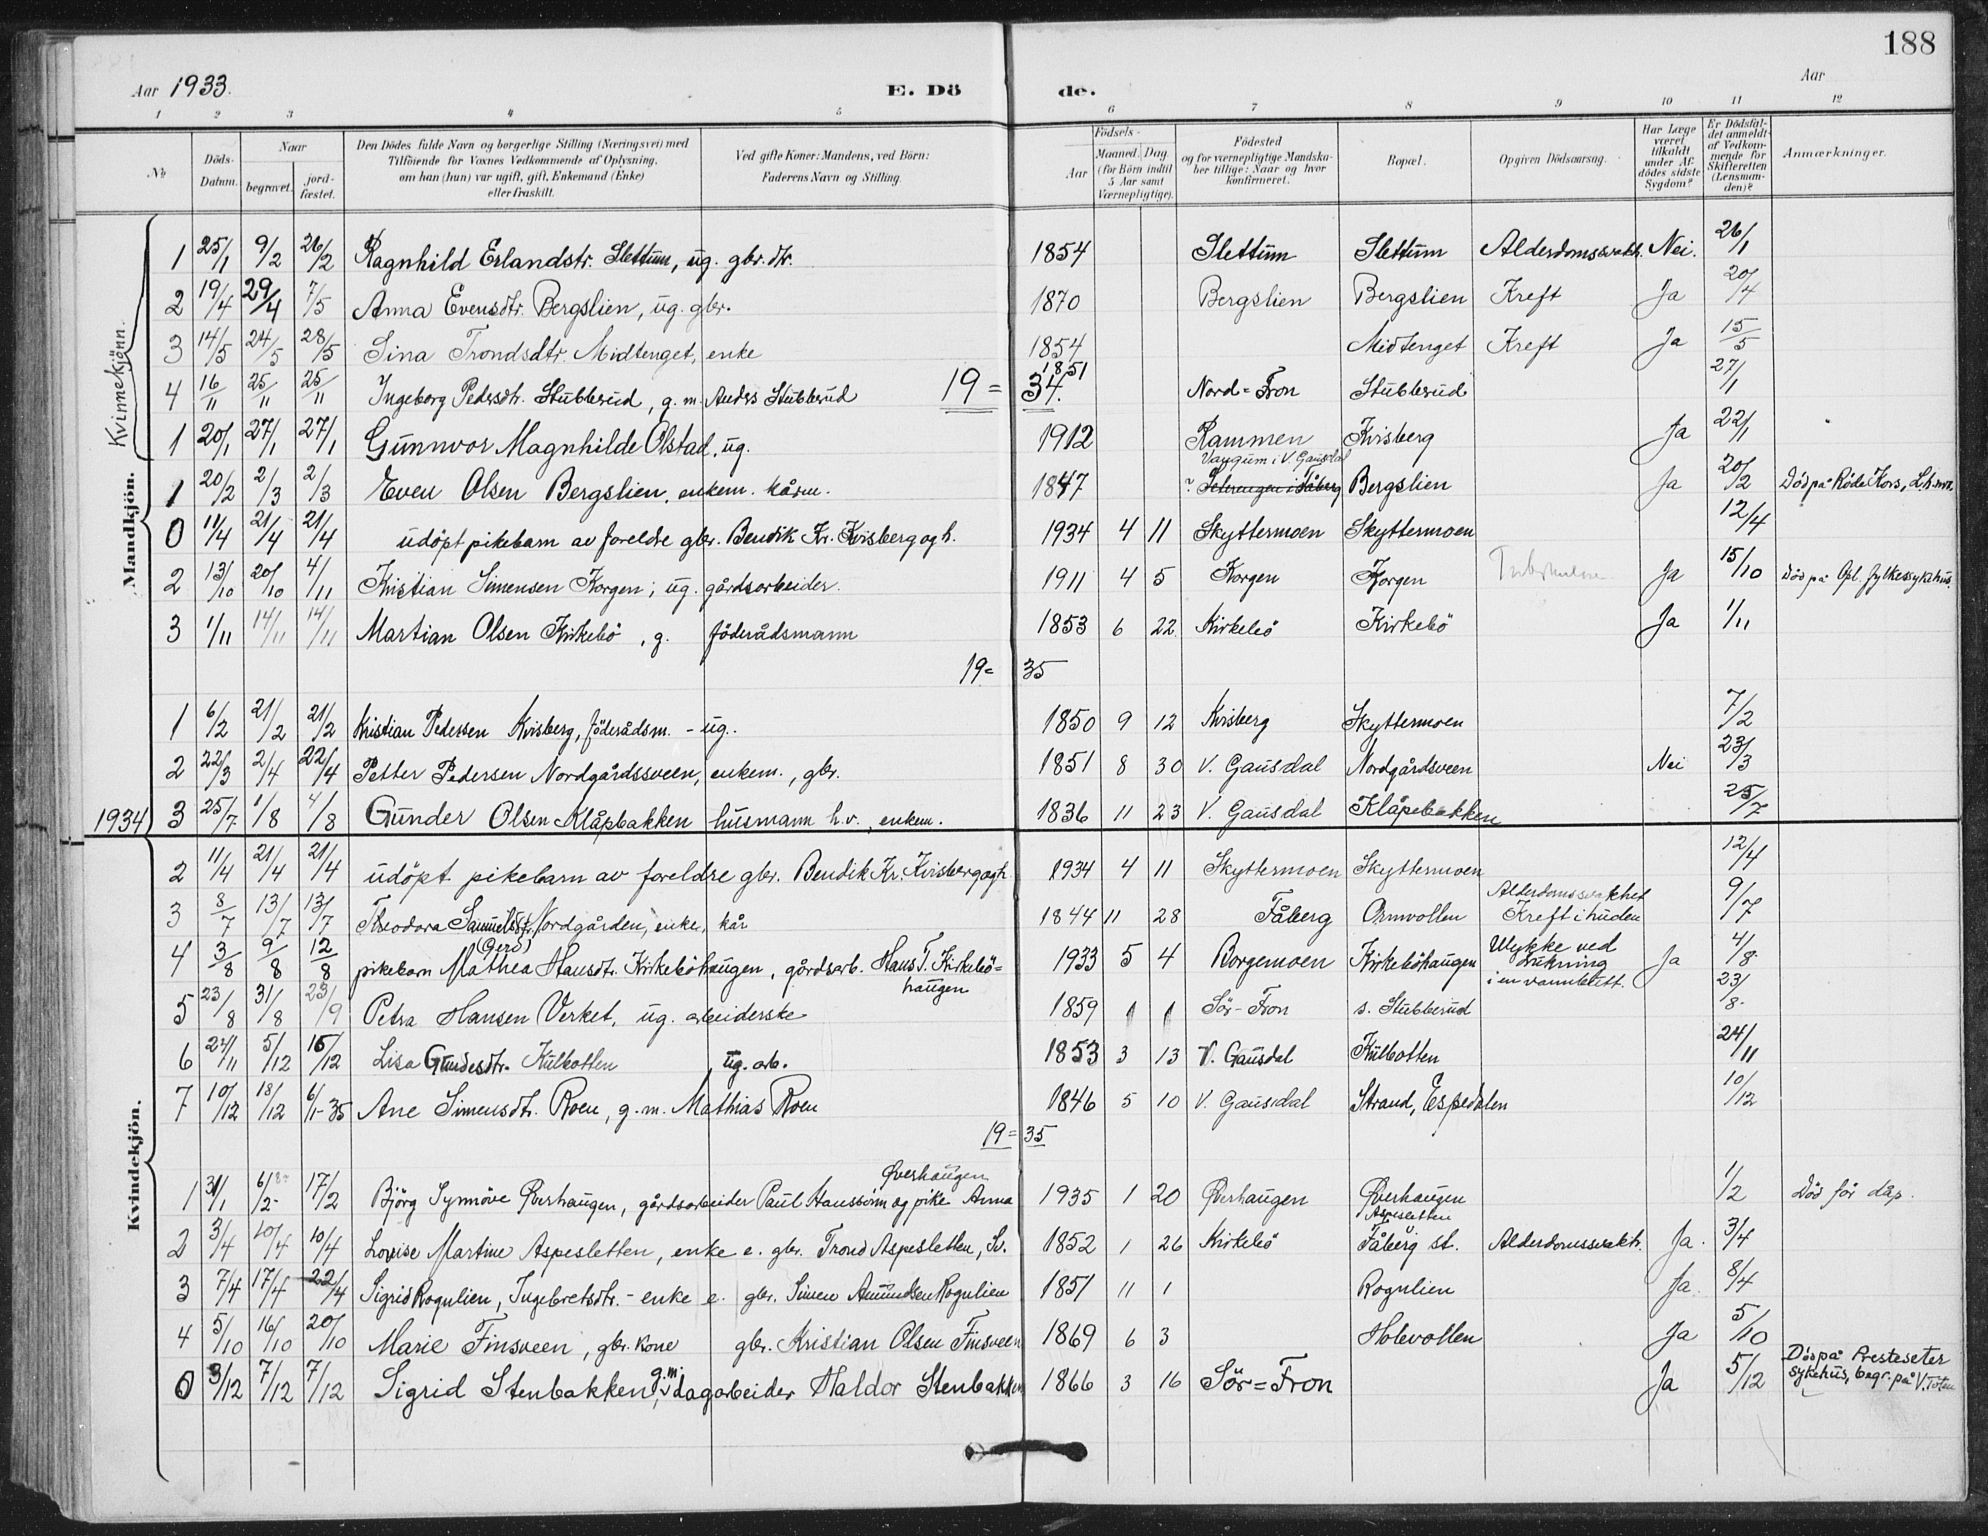 188
Aar 1933. E. Dö de. Aar
1 2 3 4 5 6 7 8 9 10 11 12
No
Döds-Datum.
Naar
begravet.
jord-fæstet.
Den Dödes fulde Navn og borgerlige Stilling (Næringsvei) med
Tilföiende for Voxnes Vedkommende af Oplysning,
om han (hun) var ugift, gift, Enkemand (Enke)
eller fraskilt.
Ved gifte Koner: Mandens, ved Börn:
Faderens Navn og Stilling.
Födsels-
Aar
Maaned. Dag
(for Börn indtil
5 Aar samt
Værnepligtige).
Födested
og for værnepligtige Mandska-
ber tillige: Naar og hvor
konfirmeret.
Bopæl.
Opgiven Dödsaarsag.
Har Læge
været
tilkaldt
under Af-
dödes sidste
Sygdom?
Er Dödsfal-
det anmeldt
af Vedkom-
mende for
Skifteretten
(Lensman-
den)?
Anmærkninger.
Kvinnekjönn.
1 25/1 9/2 26/2 Ragnhild Erlandstr. Slettum, ug. gbr. dtr. 1854 Slettum Slettum Alderdomssvakh. Nei. 26/1
2 19/4 29/4 7/5 Anna Evensdtr. Bergslien, ug. gbr. 1870 Bergslien Bergslien Kreft Ja 20/4
3 14/5 24/5 28/5 Sina Trondsdtr. Midtenget, enke 1854 Midtenget Kreft Ja 15/5
4 16/11 25/11 25/11 Ingeborg Pedrsdtr. Stubberud, g. m. Anders Stubberud 1851 Nord-Fron Stubberud 27/1
19 = 34.
1 20/1 27/1 27/1 Gunnvor Magnhilde Olstad, ug. 1912 Rammen Kvisberg Ja 22/1
Mandkjön.
1 20/2 2/3 2/3 Even Olsen Bergslien, enkem. kårm. 1847 Vangum i V. Gausdal Bergslien Ja 20/2 Död på Röde Kors, L.h.mr.
0 11/4 21/4 21/4 udöpt pikebarn av foreldre gbr. Bendik Kr. Kvisberg og h. 1934 4 11 Skyttermoen Skyttermoen 12/4
2 13/10 20/10 4/11 Kristian Simensen Korgen; ug. gårdsarbeider. 1911 4 5 Korgen Korgen Ja 15/10 Död på Opl. fylkessykehus.
3 1/11 14/11 14/11 Martian Olsen Kirkebö, g. föderådsmann 1853 6 22 Kirkebö Kirkebö Ja 1/11
19= 35
1 6/2 21/2 21/2 Kristian Pedersen Kvisberg, föderådsm. - ug. 1850 9 12 Kvisberg Skyttermoen 7/2
2 22/3 2/4 22/4 Petter Pedersen Nordgårdssveen, enkem., gbr. 1851 8 30 V. Gausdal Nordgårdsveen Nei 23/3
1934 3 25/7 1/8 4/8 Gunder Olsen Klåpbakken husmann h.v., enkem. 1836 11 23 V. Gausdal Klåpebakken 25/7
Kvindekjön.
2 11/4 21/4 21/4 udöpt pikebarn av foreldre gbr. Bendik Kr. Kvisberg og h. 1934 4 11 Skyttermoen Skyttermoen 12/4
3 8/7 13/7 13/7 Theodora Samuelsdtr. Nordgården, enke, kår 1844 11 28 Fåberg Ornvollen Alderdomssvakhet Kreft i huden 9/7
4 3/8 9/8 12/8 pikebarn (Gerd) Mathea Hansdtr. Kirkeböhaugen, gårdsarb. Hans T. Kirkebö=haugen 1933 5 4 Borgemoen Kirkeböhaugen Ulykke ved drukning i en vannbött. Ja 4/8
5 23/8 31/8 23/9 Petra Hansen Verket, ug. arbeiderske 1859 Sör-Fron s. Stubberud 23/8
6 24/11 5/12 16/12 Lisa Gundesdtr. Kulbotten ug. arb. 1853 3 13 V. Gausdal Kulbotten 24/11
7 10/12 18/12 6/1-35 Ane Simensdtr. Roen, g. m. Mathias Roen 1846 5 10 V. Gausdal Strand, Espedalen 10/12
19= 35
1 31/1 6/2 17/2 Björg Synnöve Øverhaugen, gårdsarbeider Paul Hanssönn og pike Anna Øverhaugen 1935 1 20 Øverhaugen Øverhaugen 1/2 Död för dåp.
2 3/4 10/4 10/4 Lovise Martine Aspesletten, enke e. gbr. Trond Aspesletten, Sv. 1852 1 26 Kirkebö Aspesletten Fåberg st. Alderdomssvakh. Ja. 3/4
3 7/4 17/4 22/4 Sigrid Rognlien, Ingebretsdtr. - enke e. gbr. Simen Amundsen Rognlien 1851 11 1 Rognlien Ja. 8/4
4 5/10 16/10 20/10 Marie Finsveen, gbr. kone gbr. Kristian Olsen Finsveen 1869 6 3 Holevollen Ja 5/10
0 3/12 7/12 7/12 Sigrid Stenbakken, g.m. dagarbeider Haldor Stenbakken 1866 3 16 Sör=Fron Ja 5/12 Död på Presteseter sykehus, begr. på V. Toten